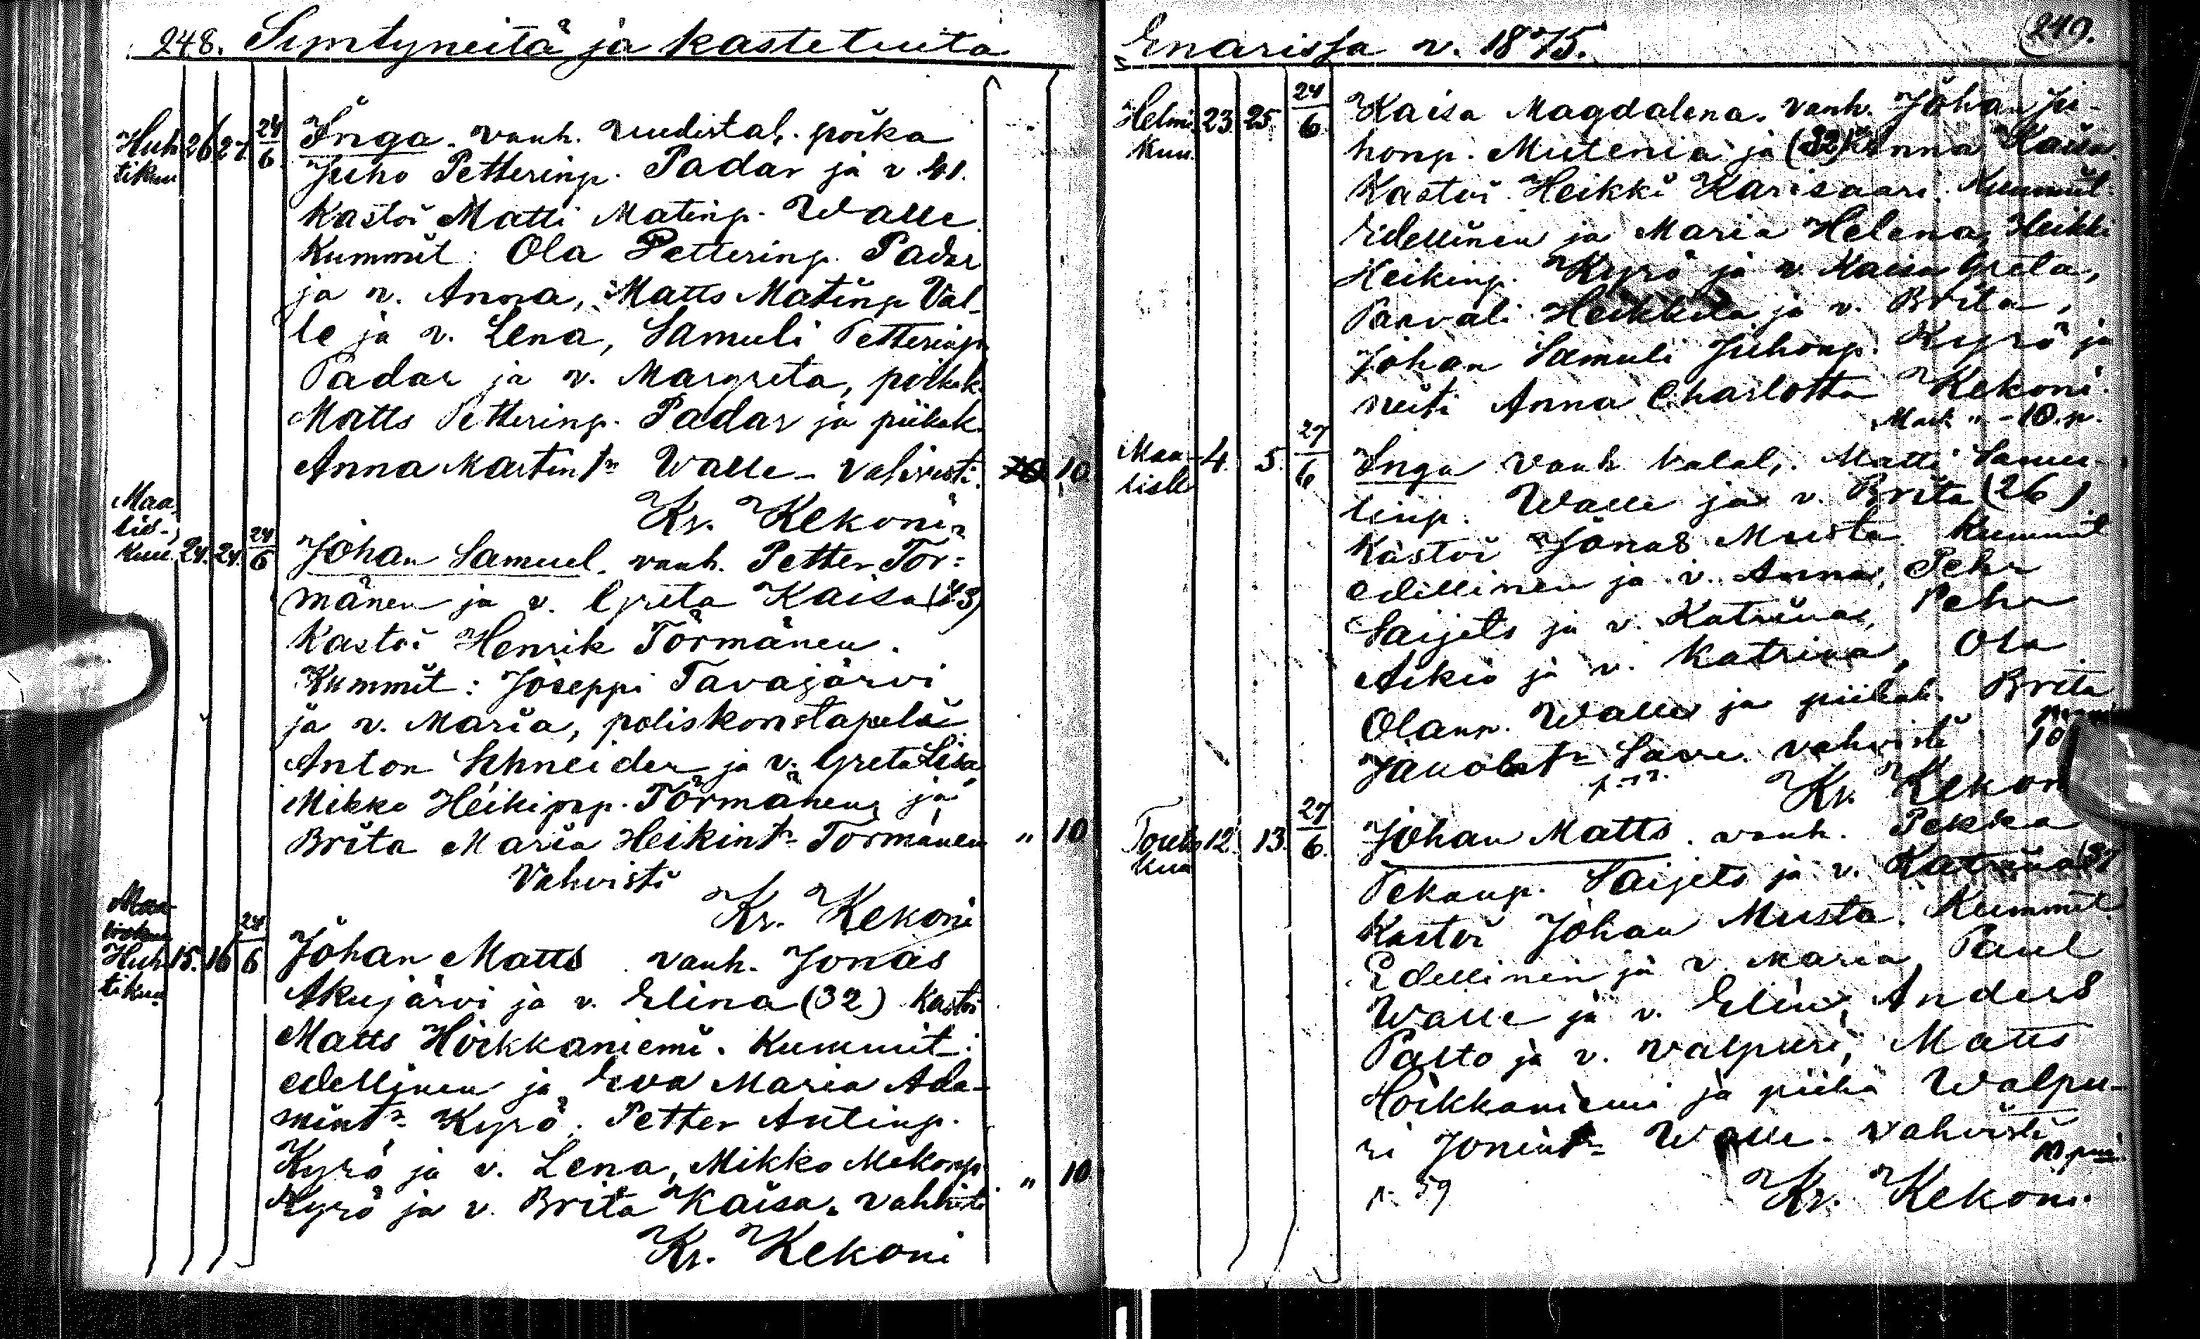 248. Syntyneitä ja kastetuita
Huh
tikuu
26 27 24/6
Inga. vanh. uudistal. poika
Juho Petterinp. Padar ja v 41.
Kastoi Matti Matinp. Walle
Kummit: Ola Petterinp. Padar
ja v. Anna, Matts Matinp Val-
le ja v. Lena, Samuli Petterinp.
Padar ja v. Margreta, poikak.
Matts Petterinp. Padar ja piikak.
Anna Martint:r Walle - vahvisti. 10
Kr. Kekoni
Maa
lis-
kuu. 24. 24. 24/6
Johan Samuel. vanh. Petter Tör=
mänen ja v. Greta Kaisa (43)
Kastoi Henrik Törmänen.
Kummit: Joseppi Tavajärvi
ja v. Maria, poliskonstapeli
Anton Schneider ja v. Greta Lisa
Mikko Heikinp. Törmänen, ja
Brita Maria Heikint:r Törmänen " 10
Vahvisti
Kr. Kekoni
Huh
tikuu
15. 16 24/6
Johan Matts vanh. Jonas
Akujärvi ja v. Elina (32) Kastoi
Matts Hoikkaniemi. Kummit:
edellinen ja Eva Maria Ada-
mint:r Kyrö. Petter Antinp.
Kyrö ja v. Lena, Mikko Mikonp.
Kyrö ja v. Brita Kaisa. vahvisti " 10
Kr. Kekoni
Enarissa v. 1875. 249.
Helmi
kuu. 23. 25. 24/6
Kaisa Magdalena. vanh. Johan Ju-
honp. Mutenia ja (32) Anna Kaisa.
Kastoi Heikki Karisaari. Kummit
Edellinen ja Maria Helena, Heikki
Heikinp. Kyrö ja v. Kaisa Greta,
Paavali Heikkila ja v. Brita,
Johan Samuli Juhonp. Kyrö ja
neiti Anna Charlotta Kekoni.
Mark " - 10. p.
Maa-
lisk 4. 5. 27/6
Inga vanh talal. Matti Samu-
linp. Walle ja v. Brita (26)
Kastoi Jonas Musta Kummit
edellinen ja v. Anna, Pehr
Saijets ja v. Katriina, Pehr
Aikio ja v. Katriina, Ola
Olanp. Walle ja piikak. Brita
Jakobt:r Sarre. vahvisti 10
Kr. Kekon
Touko
kuu 12. 13. 27/6.
Johan Matts. vanh. Pekka
Pekanp. Saijets ja v. Katriina
Kastoi Johan Musta. Kummit
Edellinen ja v Maria, Paul
Walle ja v. Elin, Anders
Palto ja v. Valpuri, Matts
Hoikkaniemi ja piika Walpu-
ri Jonint:r Walle. vahvisti
10 pni.
p. 59 Kr. Kekoni